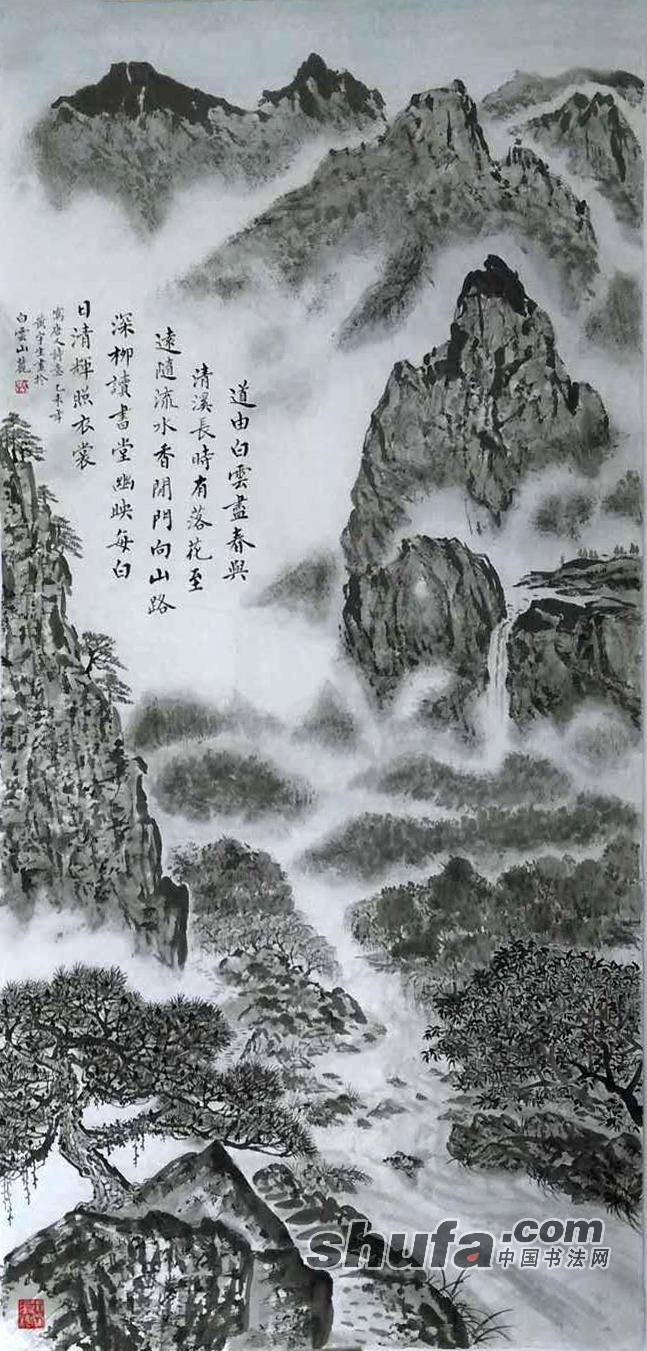 道由白雲盡春與
清溪長時有落花至
遠隨流水香閒門向山路
深柳讀書堂幽映每白
日清輝照衣裳
寫唐人詩意乙未年
畫於
白雲山麓
shufa.com
中国书法网